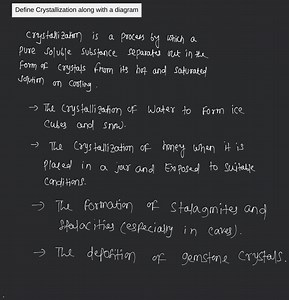 Define Crystallization along with a diagram
Crystallization is a process by which a
pure soluble substance separates out in the
form of crystals from its hot and saturated
solution on cooling.
→ The crystallization of water to form ice
cubes and snow.
→ The crystallization of honey when it is
placed in a jar and Exposed to suitable
conditions.
→ The formation of stalagmites and
stalacities (especially in caves).
→ The deposition of gemstone crystals.